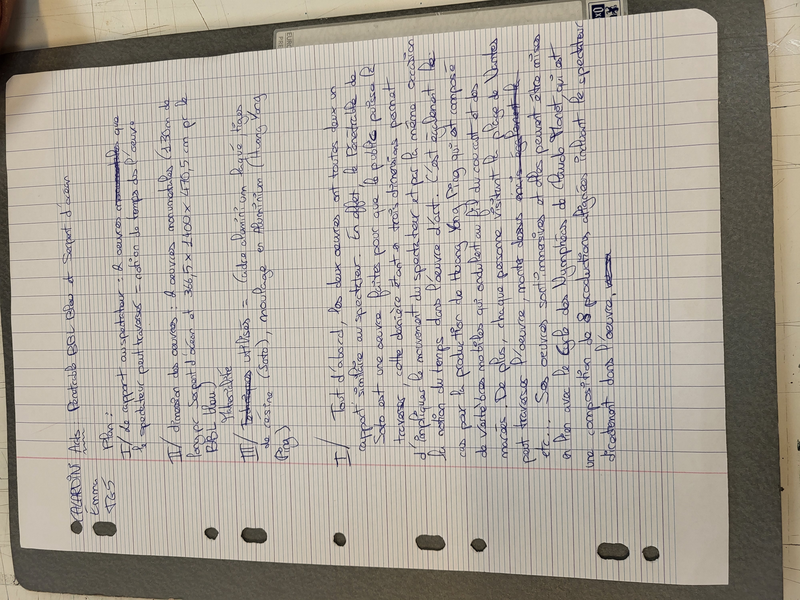 CALARDIN Arts Pénétrable BBL Bleu et Serpent d'océan
Emma
TG5
Plan:
I/ Le rapport au spectateur : 2 oeuvres que
le spectateur peut traverser = notion de temps ds l'oeuvre
II/ dimension des oeuvres : 2 oeuvres monumentales (130m de
long pr Serpent d'océan et 366,5 x 1400 x 470,5 cm pr le
BBL bleu)
Matérialité
III/ Techniques utilisés = Cadre aluminium laqué tiges
de résine (Soto), moulage en Aluminium (Huang Yong
Ping)
I/ Tout d'abord, les deux oeuvres ont toutes deux un
rapport similaire au spectateur. En effet, le Pénétrable de
Soto est une oeuvre faites pour que le public puisse le
traverser, cette dernière étant en trois dimensions permet
d'impliquer le mouvement du spectateur et par la même occasion
la notion du temps dans l'oeuvre d'art. C'est également le
cas pour la production de Huang Yong Ping qui est composé
de vertèbres mobiles qui ondulent au fil du courant et des
marées. De plus, chaque personne visitant la plage de Nantes
peut traverser l'oeuvre, monter dessus mais également le
etc... Ses oeuvres sont immersives et elles peuvent être mises
en lien avec le Cycle des Nymphéas de Claude Monet qui est
une composition de 8 productions allongées incluant le spectateur
directement dans l'oeuvre.